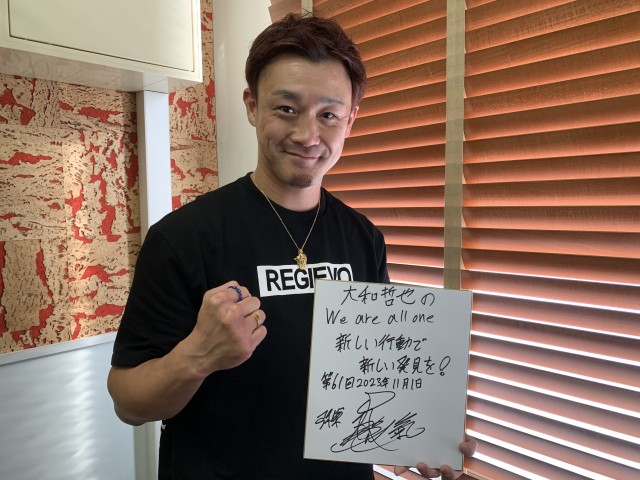 REGIEVO
大和哲也の
We are all one
新しい行動で
新しい発見を!
第61回2023年11月1日